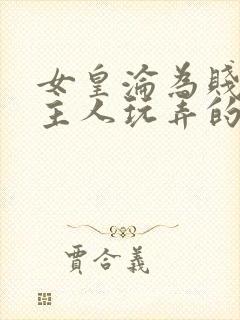 女皇淪為賤
主人玩弄的
賈合義